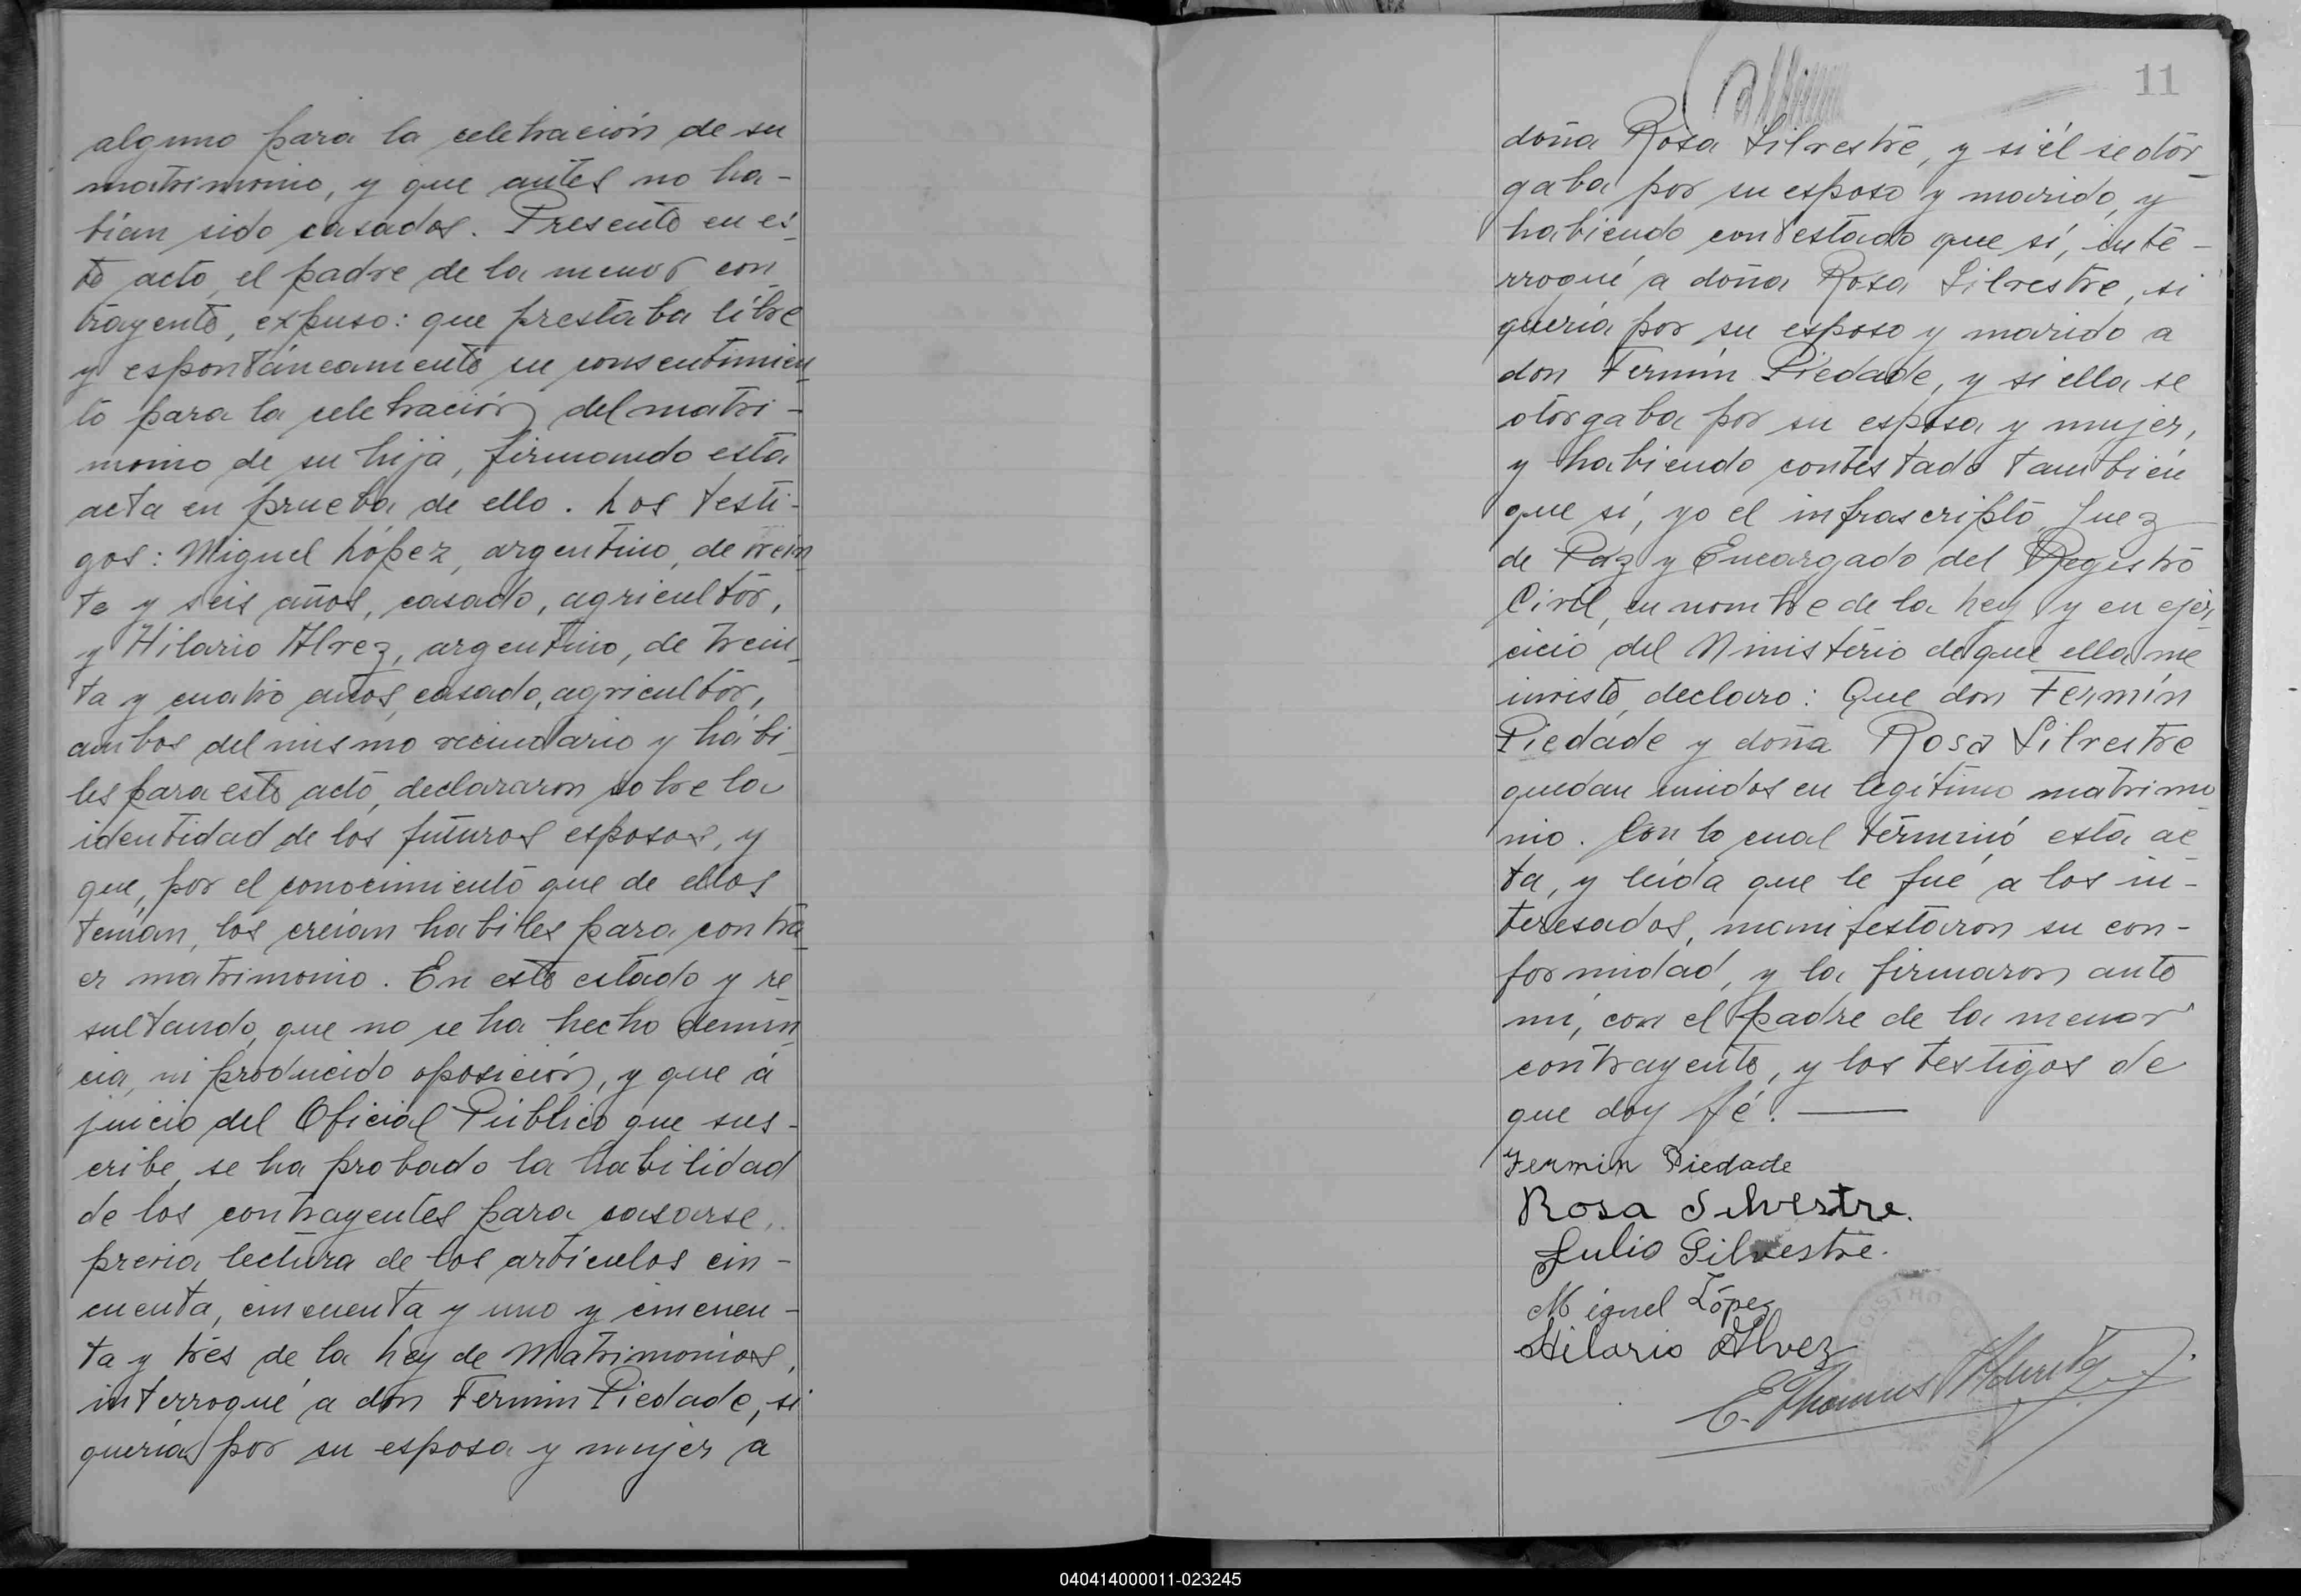 alguno para la celebración de su
matrimonio, y que antes no ha-
bían sido casados. Presente en es-
te acto, el padre de la menor con-
trayente, expuso: que prestaba libre
y espontáneamente su consentimien-
to para la celebración del matri-
monio de su hija, firmando esta
acta en prueba de ello. Los testi-
gos: Miguel López, argentino, de vein-
te y seis años, casado, agricultor,
y Hilario Alvez, argentino, de trein-
ta y cuatro años, casado, agricultor,
ambos del mismo vecindario y hábi-
les para este acto, declararon sobre la
identidad de los futuros esposos, y
que, por el conocimiento que de ellos
tenían, los creían habiles para contra-
er matrimonio. En este estado y re-
sultando, que no se ha hecho denun-
cia, ni producido oposición, y que á
juicio del Oficial Público que sus-
cribe, se ha probado la habilidad
de los contrayentes para casarse,
previa lectura de los artículos cin-
cuenta, cincuenta y uno y cincuen-
ta y tres de la Ley de Matrimonios,
interrogué a don Fermín Piedade, si
quería por su esposa y mujer a
11
doña Rosa Silvestre, y si él se otor-
gaba por su esposo y marido, y
habiendo contestado que sí, inte-
rrogué a doña Rosa Silvestre, si
quería por su esposo y marido a
don Fermín Piedade, y si ella se
otorgaba por su esposa y mujer,
y habiendo contestado también
que sí, yo el infrascripto Juez
de Paz y Encargado del Registro
Civil, en nombre de la Ley y en ejer-
cicio del Ministerio de que ella me
inviste, declaro: Que don Fermín
Piedade y doña Rosa Silvestre
quedan unidos en legítimo matrimo-
nio. Con lo cual terminó esta ac-
ta, y leída que le fué a los in-
teresados, manifestaron su con-
formidad, y la firmaron ante
mí, con el padre de la menor
contrayente, y los testigos de
que doy fé.
Fermin Piedade
Rosa Silvestre.
Julio Silvestre.
Miguel López
Hilario Alvez
040414000011-023245